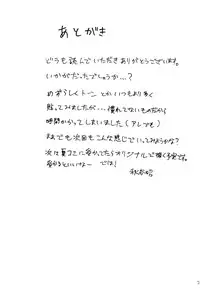 あとがき
どうも読んでいただきありがとうございます。
いかがだったでしょうか…?
めずらしくトーンとかいつもより多く
貼ってみましたが…慣れてないものだから
時間かかってしまいました(アレでも)
それでも次回もこんな感じで いってみようかな?
次は夏コミに受かってたらオリジナルで描く予定です。
受かるといいな〜 では!